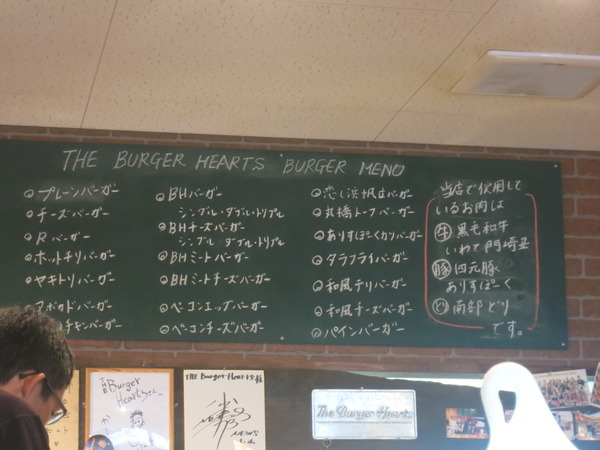 THE BURGER HEARTS BURGER MENO
プレーンバーガー
チーズバーガー
Rバーガー
ホットチリバーガー
ヤキトリバーガー
アボカドバーガー
チキンバーガー
BHバーガー
シングル・ダブル・トリプル
BHチーズバーガー
シングル・ダブル・トリプル
BHミートバーガー
BHミートチーズバーガー
ベーコンエッグバーガー
ベーコンチーズバーガー
恋し浜帆立バーガー
トーフバーガー
ありすぽーくカツバーガー
タラフライバーガー
和風テリバーガー
和風チーズバーガー
パインバーガー
当店で使用して
いるお肉は
牛 黒毛和牛
いわて門崎丑
豚 四元豚
ありすぽーく
とり 南部どり
です。
Burger
Heartsさん
THE Burger Hearts
The Burger Hearts